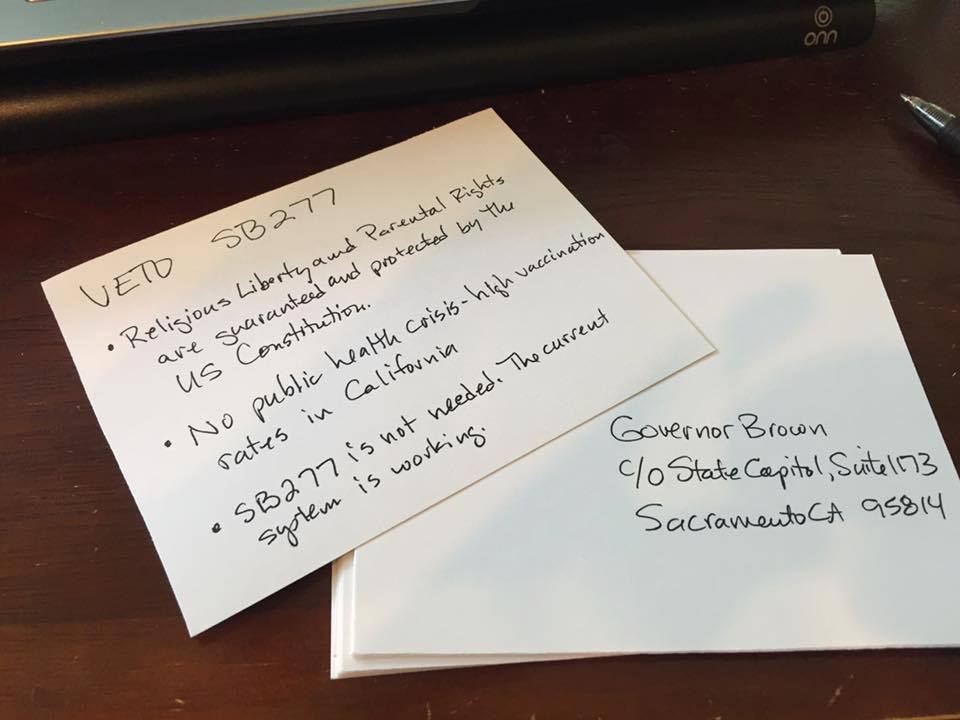 onn
VETO SB277
• Religious Liberty and Parental Rights
are guaranteed and protected by the
US Constitution.
• No public health crisis - high vaccination
rates in California
• SB277 is not needed. The current
system is working.
Governor Brown
c/o State Capitol, Suite 1173
Sacramento CA 95814